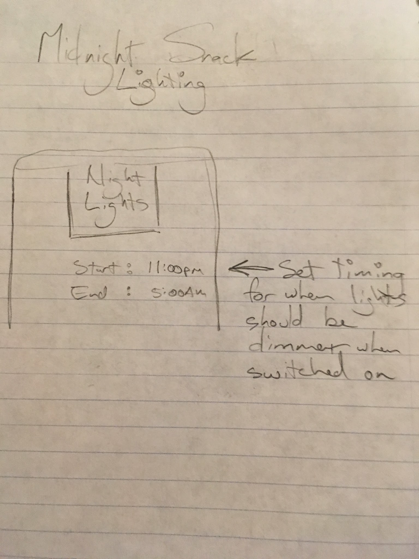 Midnight Snack
Lighting
Night
Lights
Start: 11:00pm
End : 5:00AM
Set timing
for when lights
should be
dimmer when
switched on